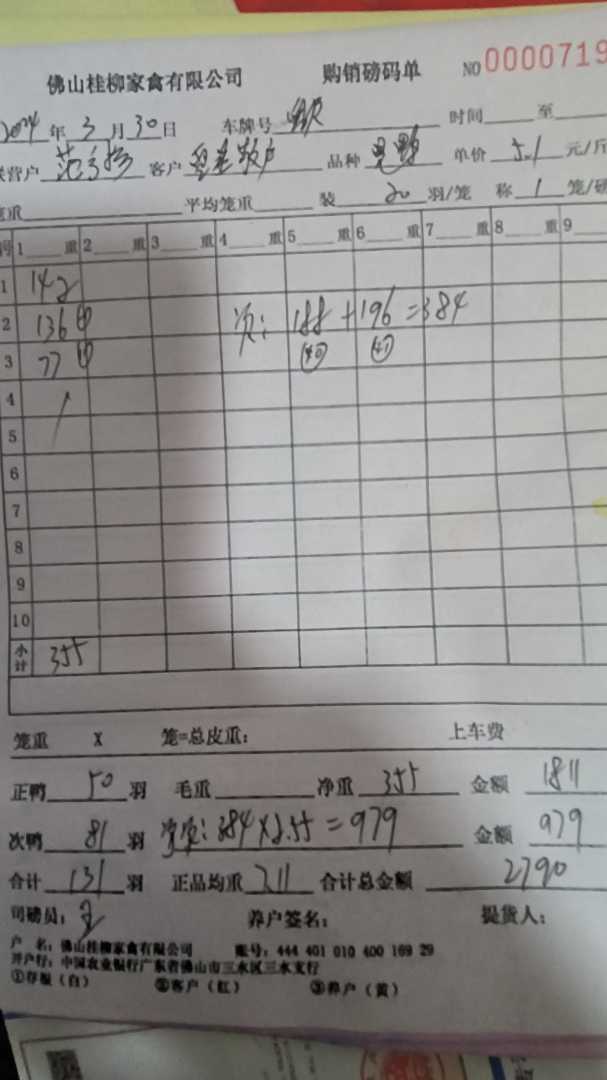 佛山桂柳家禽有限公司 购销磅码单 NO 0000719
2024 年 3 月 30 日 车牌号 时间 至
营户 客户 品种 单价 5.1 元/斤
重 平均笼重 装 20 羽/笼 称 1 笼/磅
号 1 重 2 重 3 重 4 重 5 重 6 重 7 重 8 重 9
1 142
2 136 次: 188 + 196 = 384
3 77
4
5
6
7
8
9
10
小计 355
笼重 X 笼=总皮重: 上车费
正鸭 50 羽 毛重 净重 355 金额 1811
次鸭 81 羽 384 × 2.55 = 979 金额 979
合计 131 羽 正品均重 7.11 合计总金额 2790
司磅员: 养户签名: 提货人:
户 名: 佛山桂柳家禽有限公司 账号: 444 401 010 400 169 29
开户行: 中国农业银行广东省佛山市三水区三水支行
①存根(白) ②客户(红) ③养户(黄)